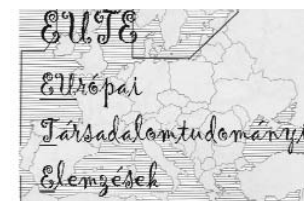 EUTE
EUrópai
Társadalomtudományi
Elemzések